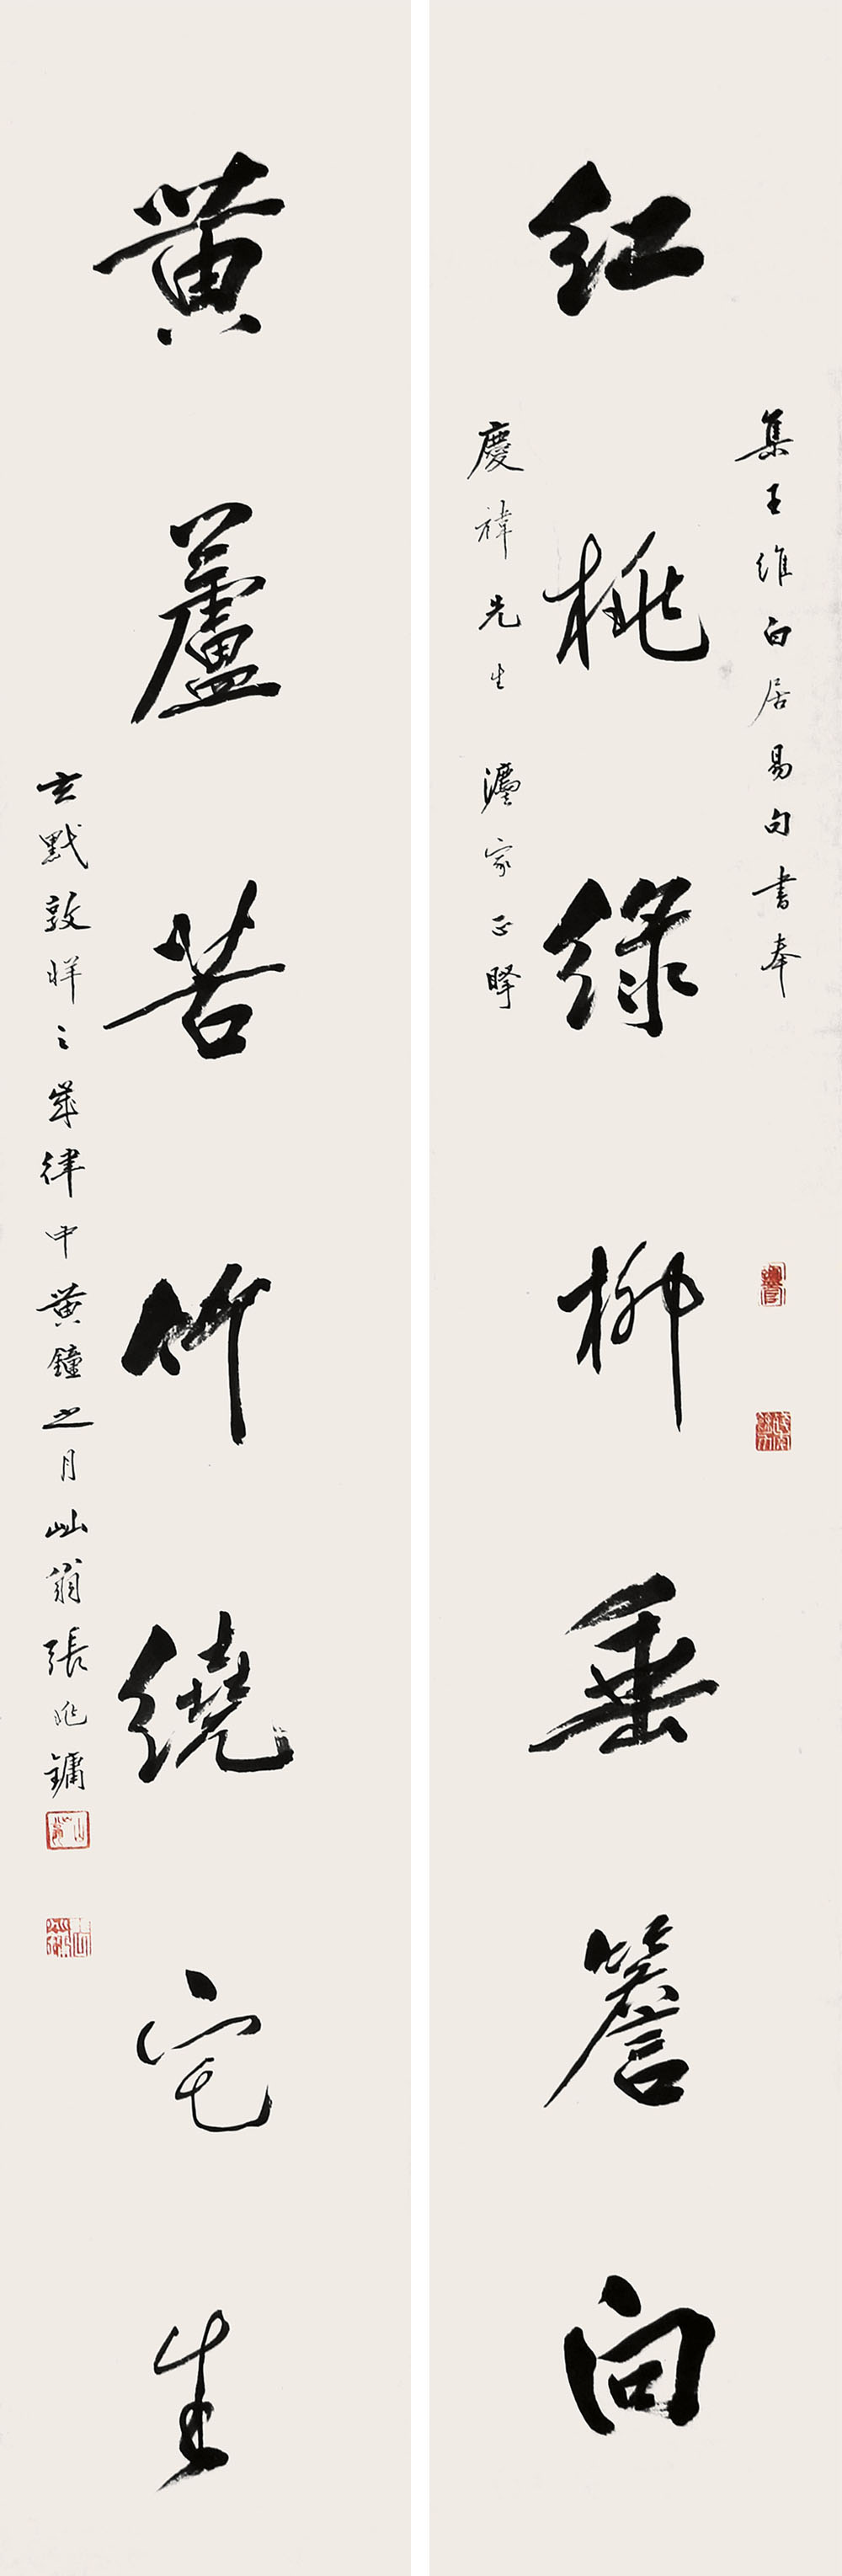 集王維白居易句書奉
紅桃綠柳垂簷向
慶禕先生 灋家正腎
黃蘆苦竹繞宅生
玄黓敦牂之歲律中黃鐘之月山翁張兆鏞